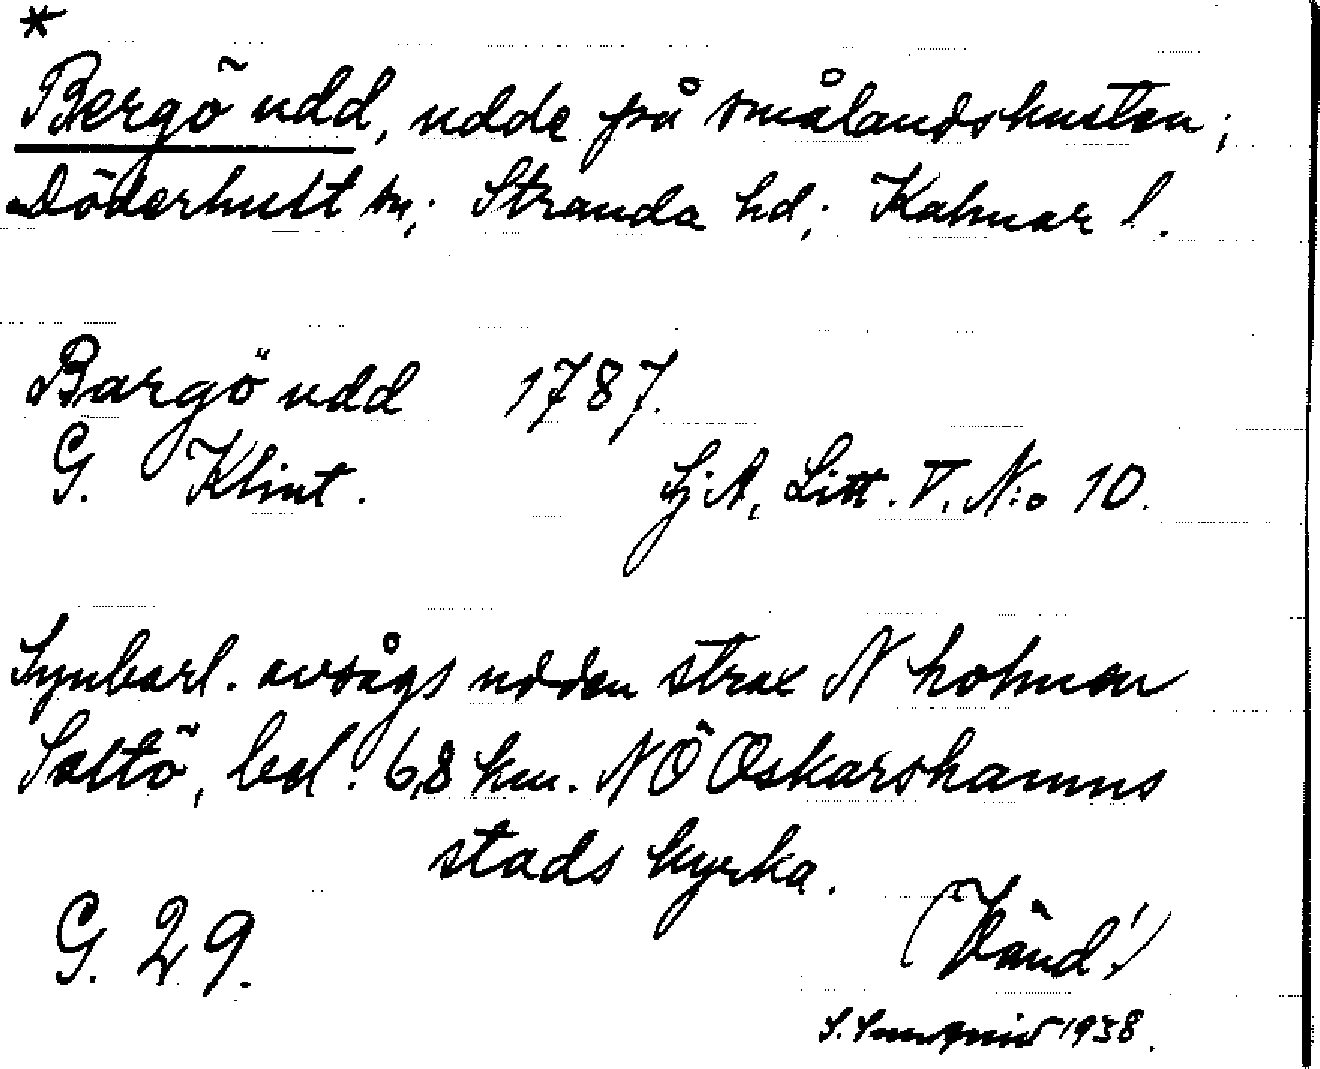 *
Bergö udd, udde på smålandskusten;
Döderhult sn; Stranda hd; Kalmar l.
Bargö udd 1787.
G. Klint. SjA, Litt. V. N:o 10.
Synbarl. avsågs udden strax N holmen
Saltö, bel. 6,8 km. NÖ Oskarshamns
stads kyrka.
G. 29.
(Vänd!)
S. 1938.